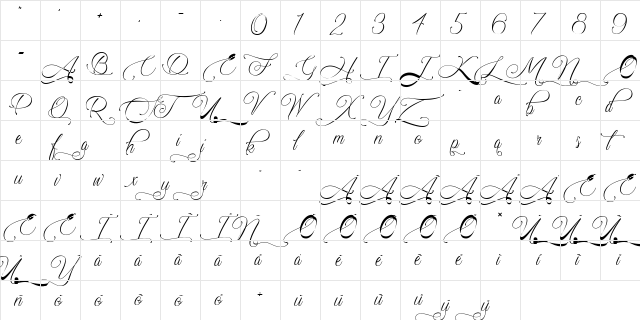 * , + , - .  0 1 2 3 4 5 6 7 8 9
- A B C D E F G H I J K L M N O
P Q R S T U V W X Y Z ` a b c d
e f g h i j k l m n o p q r s t
u v w x y z À Á Â Ã Ä Å Ç È
É Ê Ì Í Î Ï Ñ Ò Ó Ô Õ Ö × Ù Ú Û
Ü Ý à á â ã ä å è é ê ë ì í î ï
ñ ò ó ô õ ö ÷ ù ú û ü ý ÿ